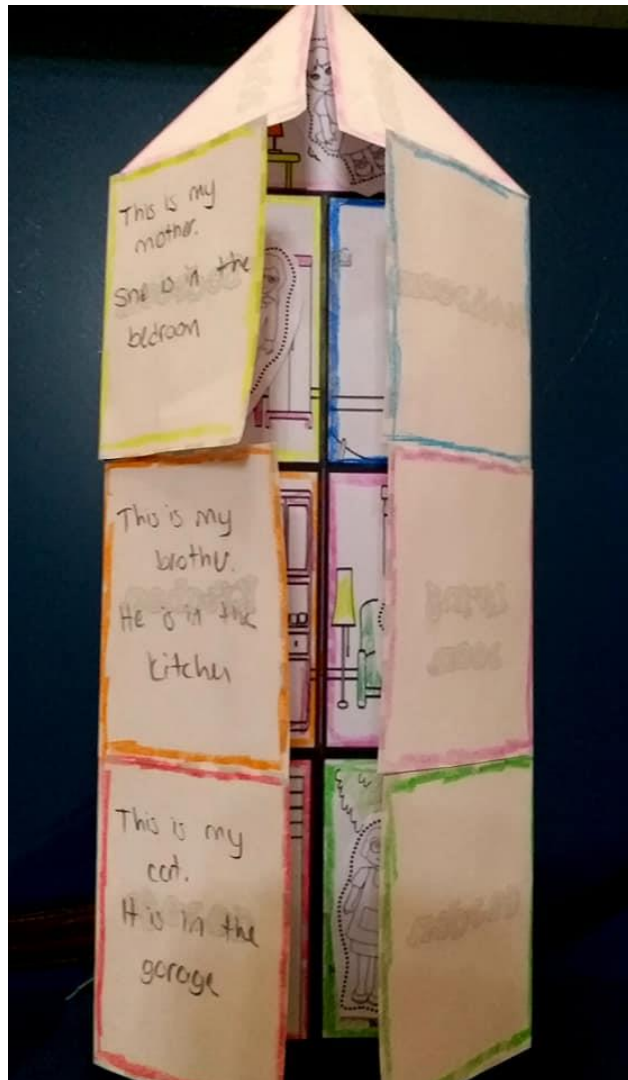 This is my
mother.
She is in the
bedroom
This is my
brother.
He is in the
kitchen
This is my
cat.
It is in the
garage